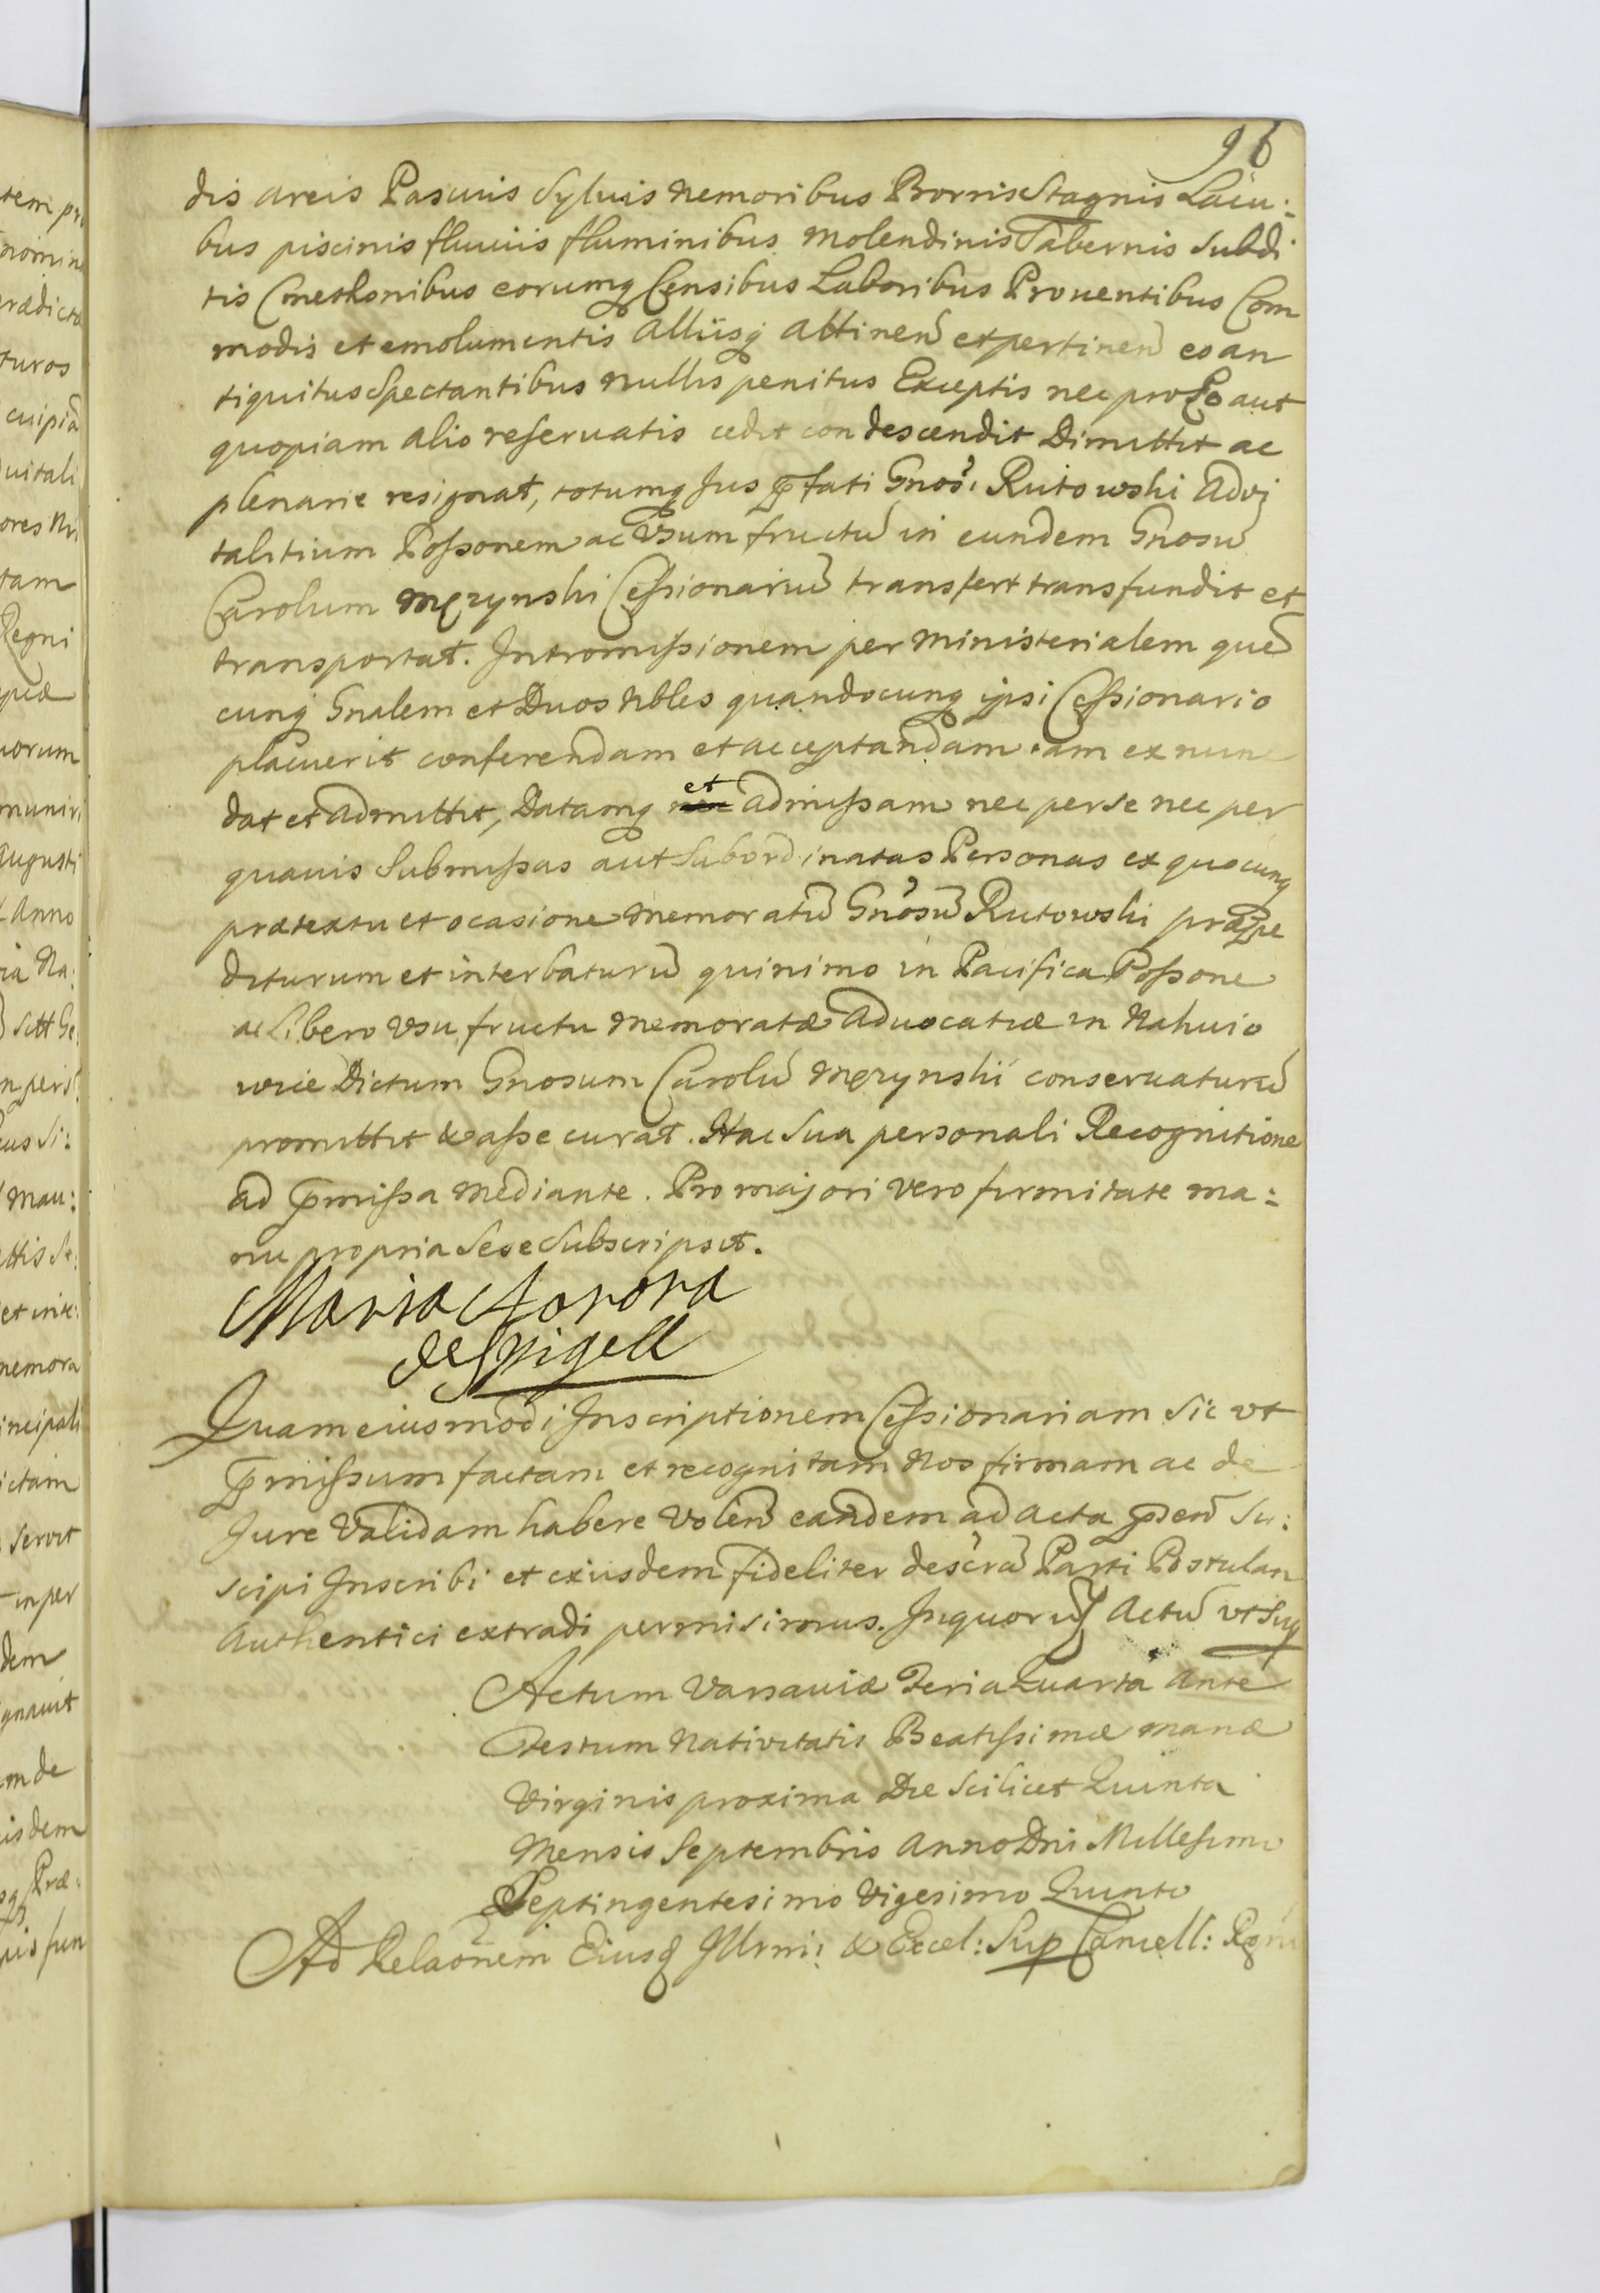 96
dis areis Pascuis Syluis Nemoribus Borris Stagnis Lacu:
bus piscinis fluuiis fluminibus Molendinis Tabernis Subdi
tis Cmethonibus eorumq Censibus Laboribus Prouentibus Com
modis et emolumentis Alliisq Attinen̄ et pertinen̄ eo an
tiquitus Spectantibus Nullis penitus Exceptis nec pro Se aut
quopiam alio reseruatis cedit condescendit Dimittit ac
plenarie resignat, totumq Jus p̄fati Gnosi Rutowski Advi
talitium Possonem ac Vsum fructū in eundem Gnosū
Carolum Męzynski Cessionariū transfert transfundit et
transportat. Intromissionem per Ministerialem quē
cunq Gnalem et Duos Nbles quandocunq ipsi Cessionario
placuerit conferendam et acceptandam iam ex nunc
dat et admittit, Datamq et admissam nec per Se nec per
quauis Submissas aut Subordinatas Personas ex quocunq
prætextu et ocasione memoratū Gnosū Rutowski præpe
diturum et interbaturū quinimo in Pacifica Possone
ac Libero Vsu fructu memoratæ Aduocatiæ in Nahuio
wice Dictum Gnosum Carolū Męzynskii conseruaturū
promittit & assecurat. Hac Sua personali Recognitione
ad p̄missa Mediante. Pro majori vero firmitate ma:
nu propria Sese Subscripsit.
Maria Aorora
de Spigell
Quam eiusmodi Inscriptionem Cessionariam Sic vt
p̄missum factam et recognitam Nos firmam ac de
Jure Validam habere Volen̄ eandem ad Acta p̄sen̄ Su:
scipi Inscribi et exiusdem fideliter descrā Parti Postulan
Authentici extradi permisimus. In quorū Actū vt Sup
Actum Varsauiæ Feria Quarta Ante
Festum Nativitatis Beatissimæ Mariæ
Virginis proxima Die Scilicet Quinta
Mensis Septembris Anno Dni Millesimo
Septingentesimo Vigesimo Quinto
Ad Relaōnem Eiusd Illrmi: & Excel: Sup Cancell: Regni